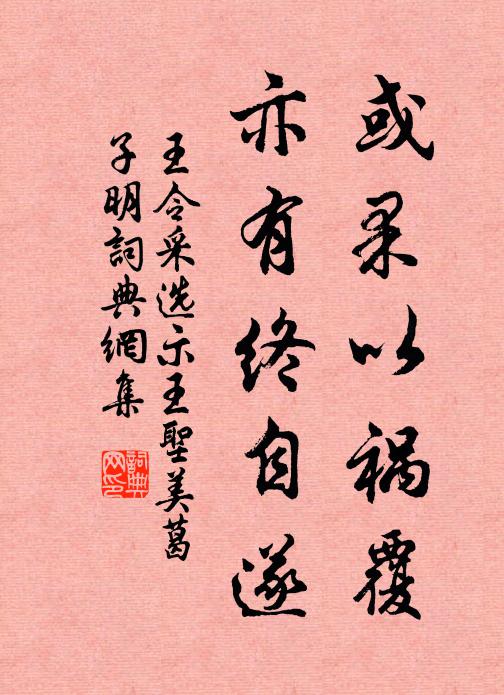 或果以禍覆
亦有終自遂
王令采选示王聖美葛
子明詞典網集
詞典
网印